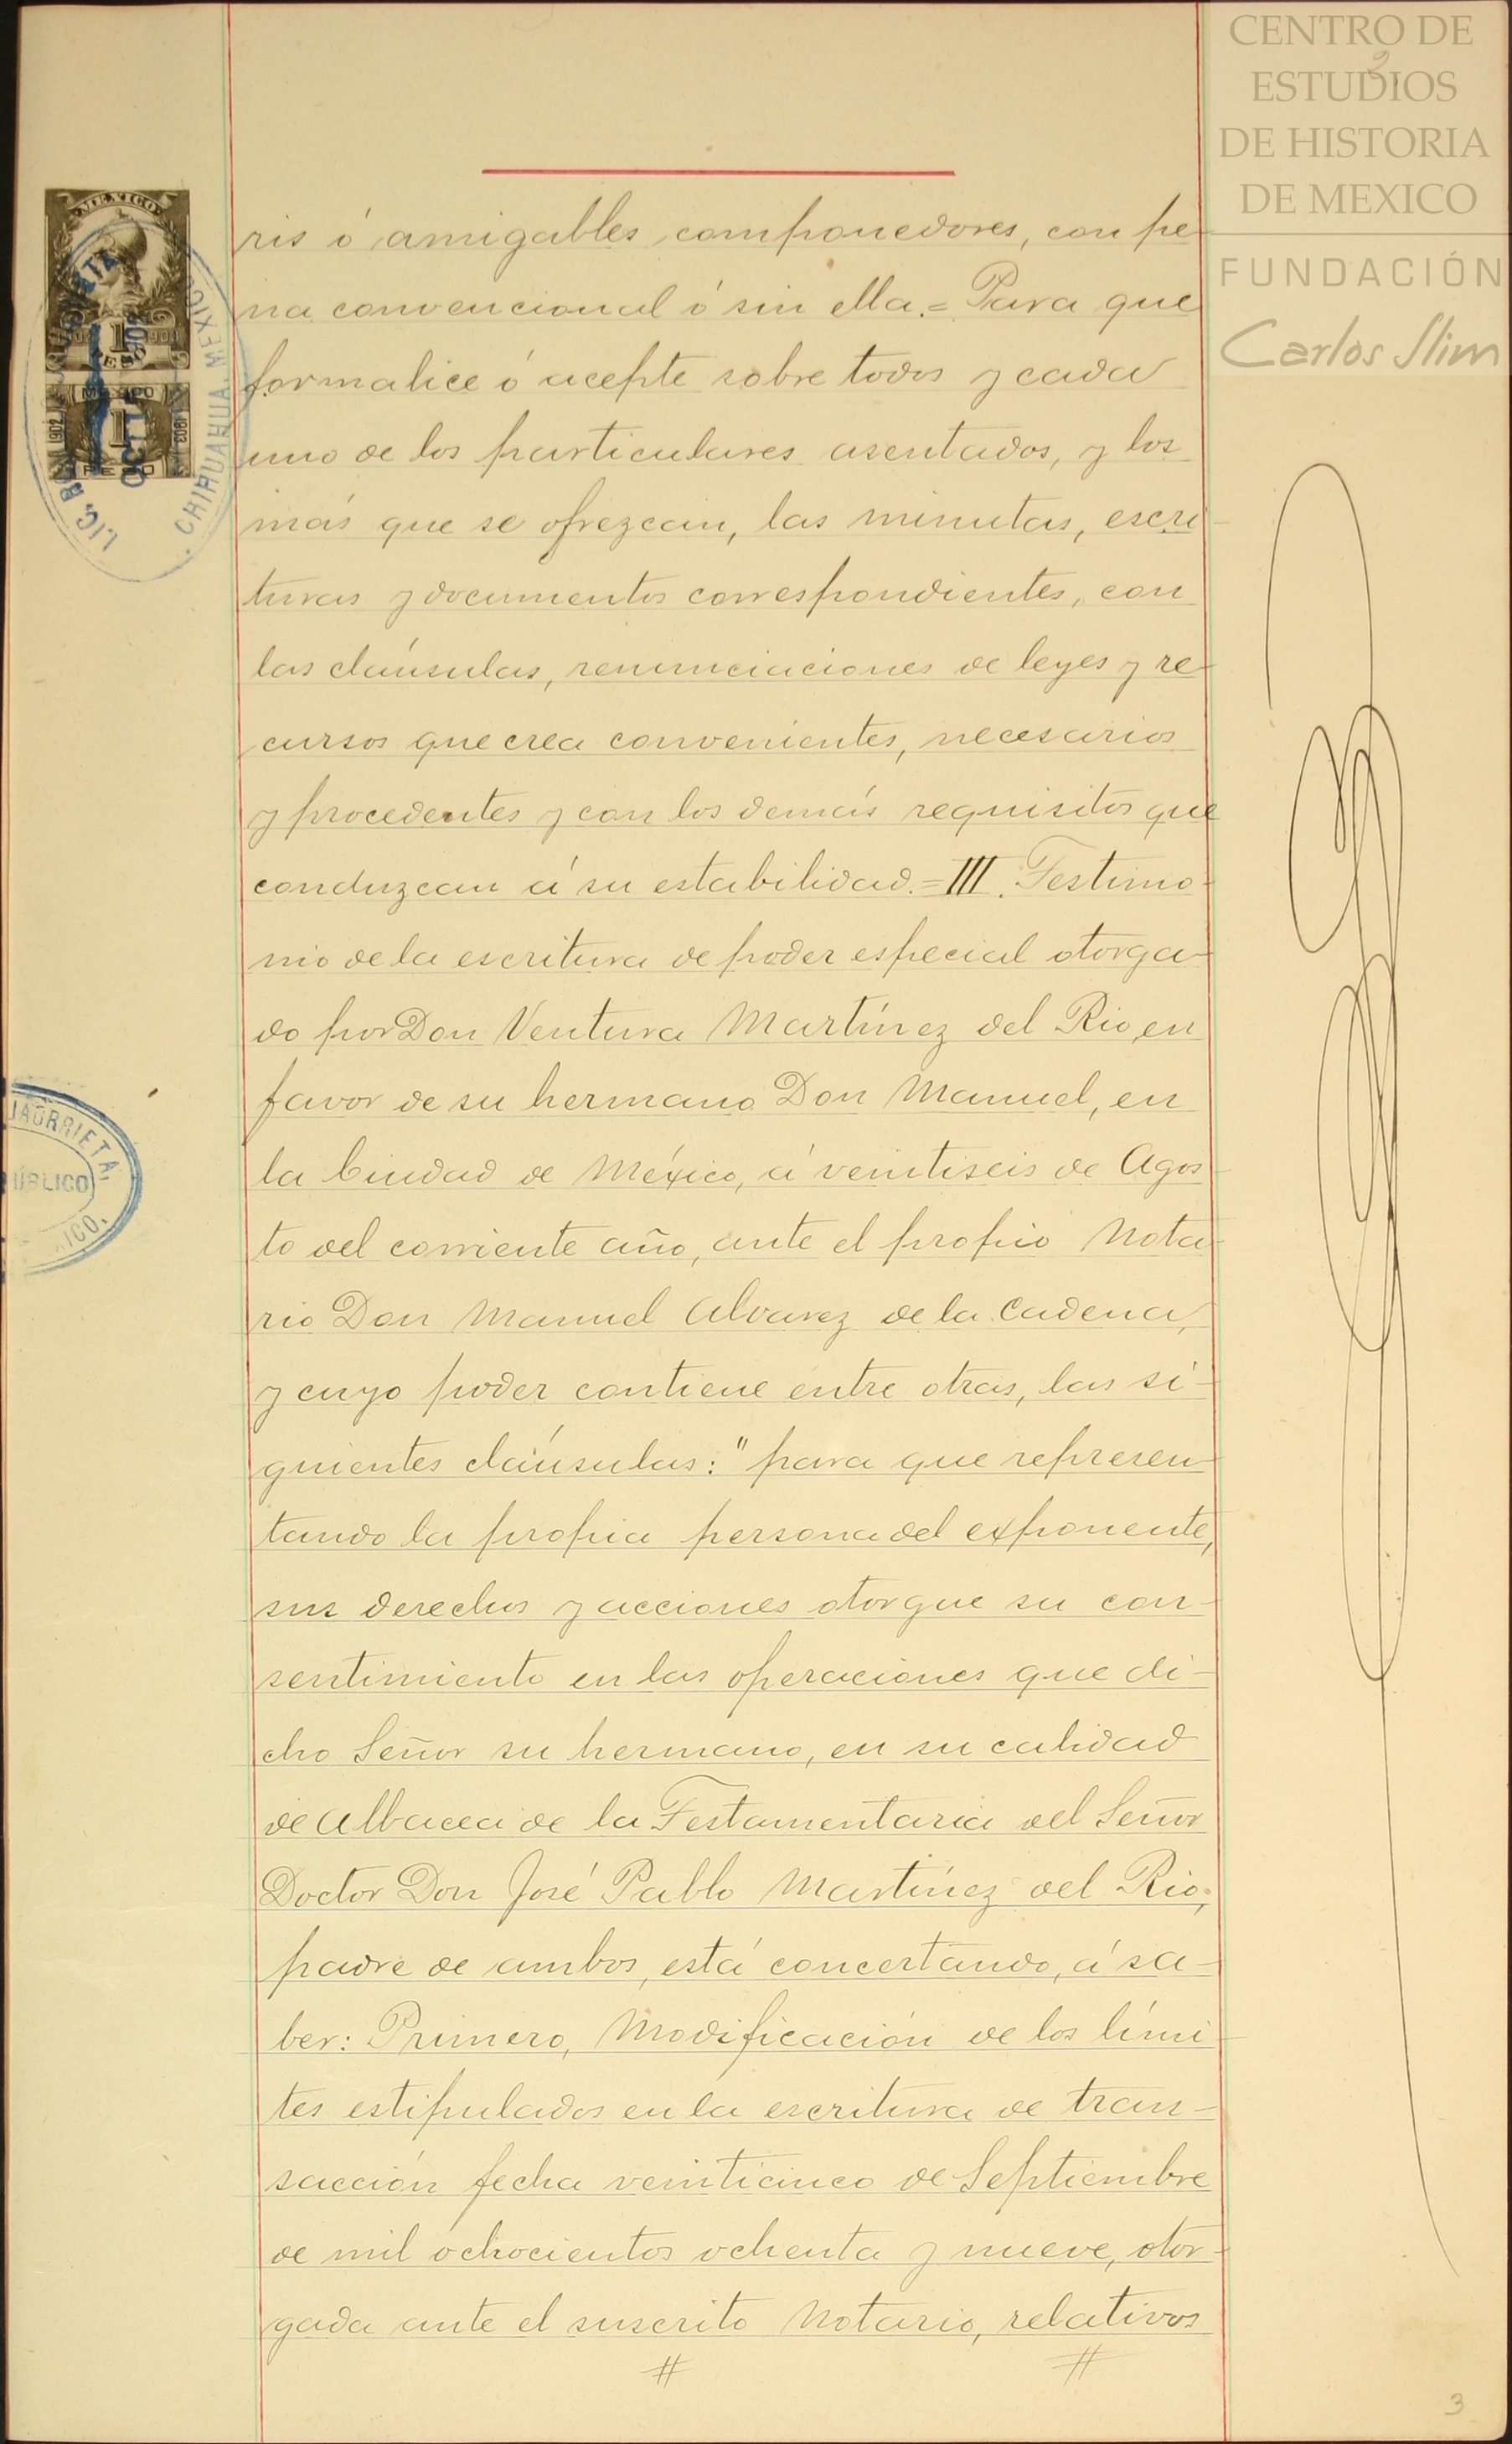 CENTRO DE
ESTUDIOS
DE HISTORIA
DE MEXICO
FUNDACIÓN
Carlos Slim
3
MEXICO
1
PESO
1
1902
1903
OCT
LIC.
CHIHUAHUA MEXICO
ris ó amigables componedores, con pe
na convencional ó sin ella.= Para que
formalice ó acepte sobre todos y cada
uno de los particulares asentados, y los
más que se ofrezcan, las minutas, escri
turas y documentos correspondientes, con
las claúsulas, renunciaciones de leyes y re-
cursos que crea convenientes, necesarios
y procedentes y con los demás requisitos que
conduzcan á su estabilidad.=III. Testimo-
nio de la escritura de poder especial otorga-
do por Don Ventura Martínez del Rio, en
favor de su hermano Don Manuel, en
la Ciudad de México, á veintiseis de Agos
to del corriente año, ante el propio Nota
rio Don Manuel Alvarez de la Cadena,
y cuyo poder contiene entre otras, las si-
guientes claúsulas: "para que represen
tando la propia persona del exponente,
sus derechos y acciones otorgue su con-
sentimiento en las operaciones que di-
cho Señor su hermano, en su calidad
de Albacea de la Testamentaria del Señor
Doctor Don José Pablo Martínez del Rio,
padre de ambos, está concertando, á sa-
ber: Primero, Modificación de los lími
tes estipulados en la escritura de tran-
sacción fecha veinticinco de Septiembre
de mil ochocientos ochenta y nueve, otor-
gada ante el suscrito Notario, relativos
JAURRIETA.
PÚBLICO
XICO.
3